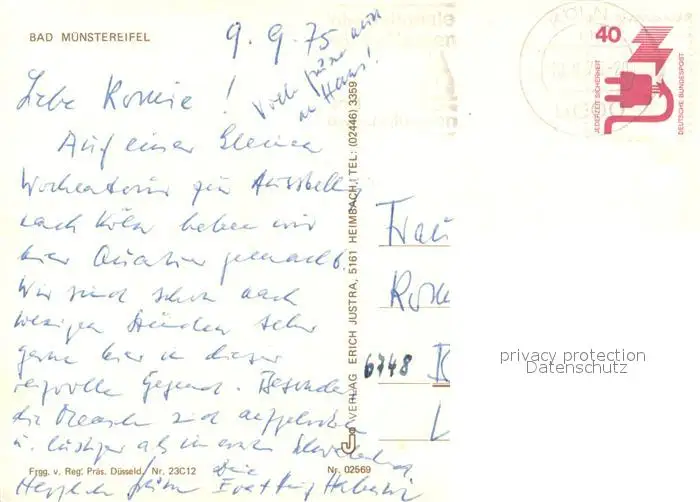 BAD MÜNSTEREIFEL
9. 9. 75
Liebe Romie!
Viele Grüße auch
an Hans!
Auf einer kleinen
Wochentour zur Ausstellung
nach Köln haben wir
hier Quartier gemacht.
Wir sind schon nach
wenigen Stunden sehr
gerne hier in dieser
reizvolle Gegend. Besonders
die Menschen sind
u. lustiger als im ersten
Herzliche Grüße
Frgg. v. Reg. Präs. Düsseld. Nr. 23C12
Nr. 02569
VERLAG ERICH JUSTRA, 5161 HEIMBACH, TEL: (02446) 3359
40
JEDERZEIT SICHERHEIT
DEUTSCHE BUNDESPOST
Frau
6748
privacy protection
Datenschutz